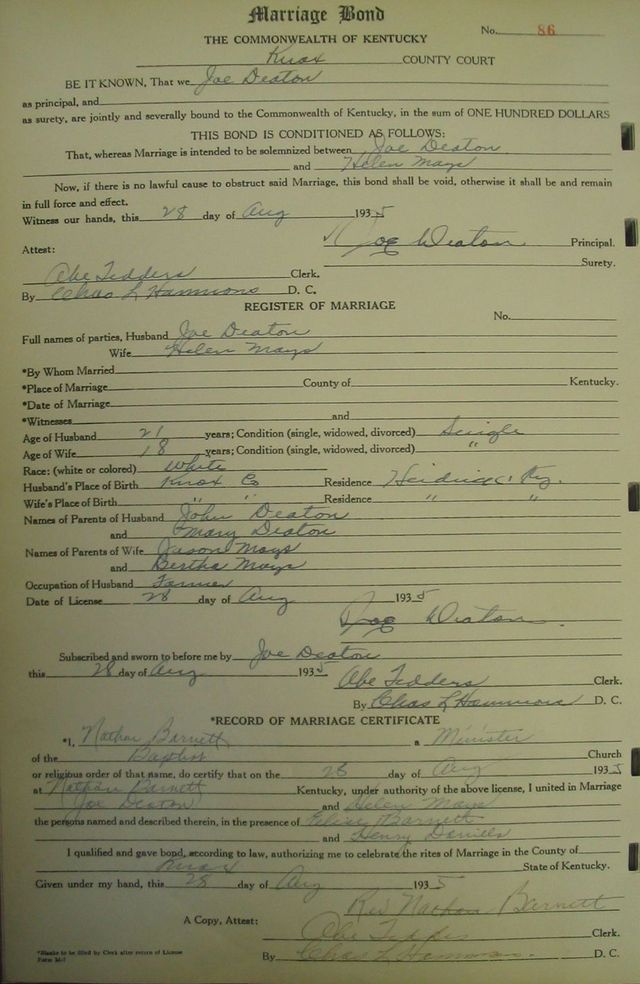 Marriage Bond
No. 86
THE COMMONWEALTH OF KENTUCKY
Knox COUNTY COURT
BE IT KNOWN, That we Joe Deaton
as principal, and
as surety, are jointly and severally bound to the Commonwealth of Kentucky, in the sum of ONE HUNDRED DOLLARS
THIS BOND IS CONDITIONED AS FOLLOWS:
That, whereas Marriage is intended to be solemnized between Joe Deaton
and Helen Mays
Now, if there is no lawful cause to obstruct said Marriage, this bond shall be void, otherwise it shall be and remain
in full force and effect.
Witness our hands, this 28 day of Aug 1935
Joe Deaton Principal.
Attest: Surety.
Abe Tedders Clerk.
By Chas L Hammons D. C.
REGISTER OF MARRIAGE
No.
Full names of parties, Husband Joe Deaton
Wife Helen Mays
*By Whom Married
*Place of Marriage County of Kentucky.
*Date of Marriage
*Witnesses and
Age of Husband 21 years; Condition (single, widowed, divorced) Single
Age of Wife 18 years; Condition (single, widowed, divorced) "
Race: (white or colored) White
Husband's Place of Birth Knox Co Residence Heidrick Ky.
Wife's Place of Birth " " Residence " "
Names of Parents of Husband John Deaton
and Mary Deaton
Names of Parents of Wife Jason Mays
and Bertha Mays
Occupation of Husband Farmer
Date of License 28 day of Aug 1935
Joe Deaton
Subscribed and sworn to before me by Joe Deaton
this 28 day of Aug 1935
Abe Tedders Clerk.
By Chas L Hammons D. C.
*RECORD OF MARRIAGE CERTIFICATE
*I, Nathan Barnett a Minister
of the Baptist Church
or religious order of that name, do certify that on the 28 day of Aug 1935
at Nathan Barnett Kentucky, under authority of the above license, I united in Marriage
Joe Deaton and Helen Mays
the persons named and described therein, in the presence of Barnett
and Henry Daniels
I qualified and gave bond, according to law, authorizing me to celebrate the rites of Marriage in the County of
Knox State of Kentucky.
Given under my hand, this 28 day of Aug 1935
Rev Nathan Barnett
A Copy, Attest: Abe Tedders Clerk.
By Chas L Hammons D. C.
*Blanks to be filled by Clerk after return of License